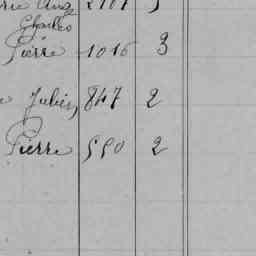 Charles
Pierre 1016 3
Julien 847 2
Pierre 590 2